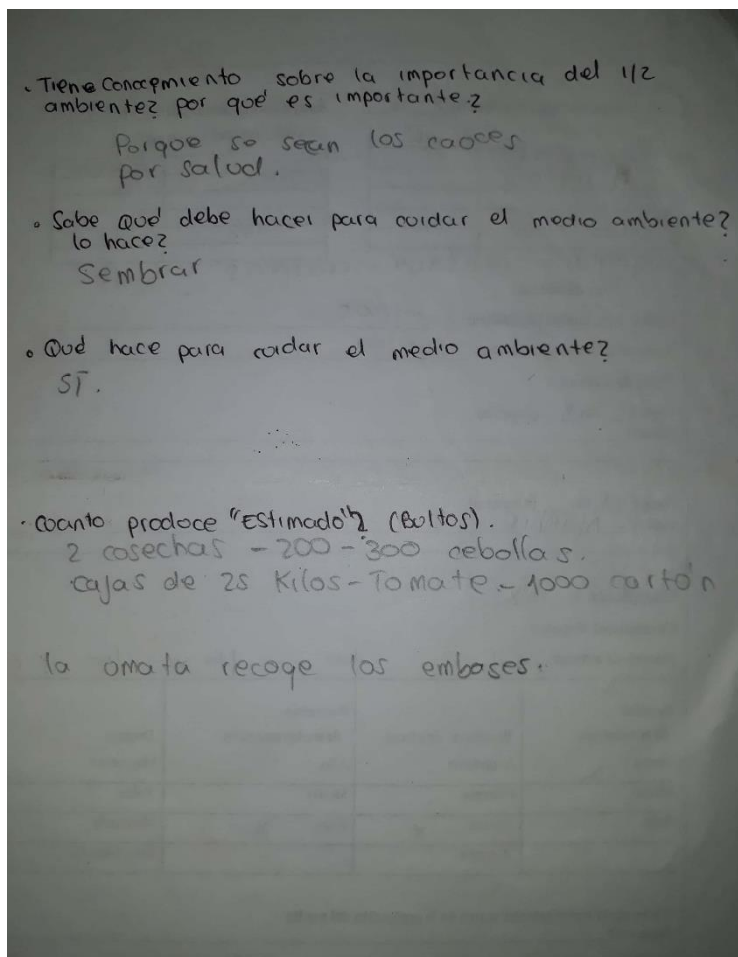 . Tiene Conocpmiento sobre la importancia del 1/2
ambiente? por qué es importante?
Porque se secan los caoces
por salud.
• Sabe Qué debe hacer para cuidar el medio ambiente?
lo hace?
Sembrar
• Qué hace para cuidar el medio ambiente?
SI.
. Cuanto produce "Estimado"? (Bultos).
2 cosechas - 200 - 300 cebollas.
cajas de 25 Kilos - Tomate - 1000 cartón
la omata recoge los embases.